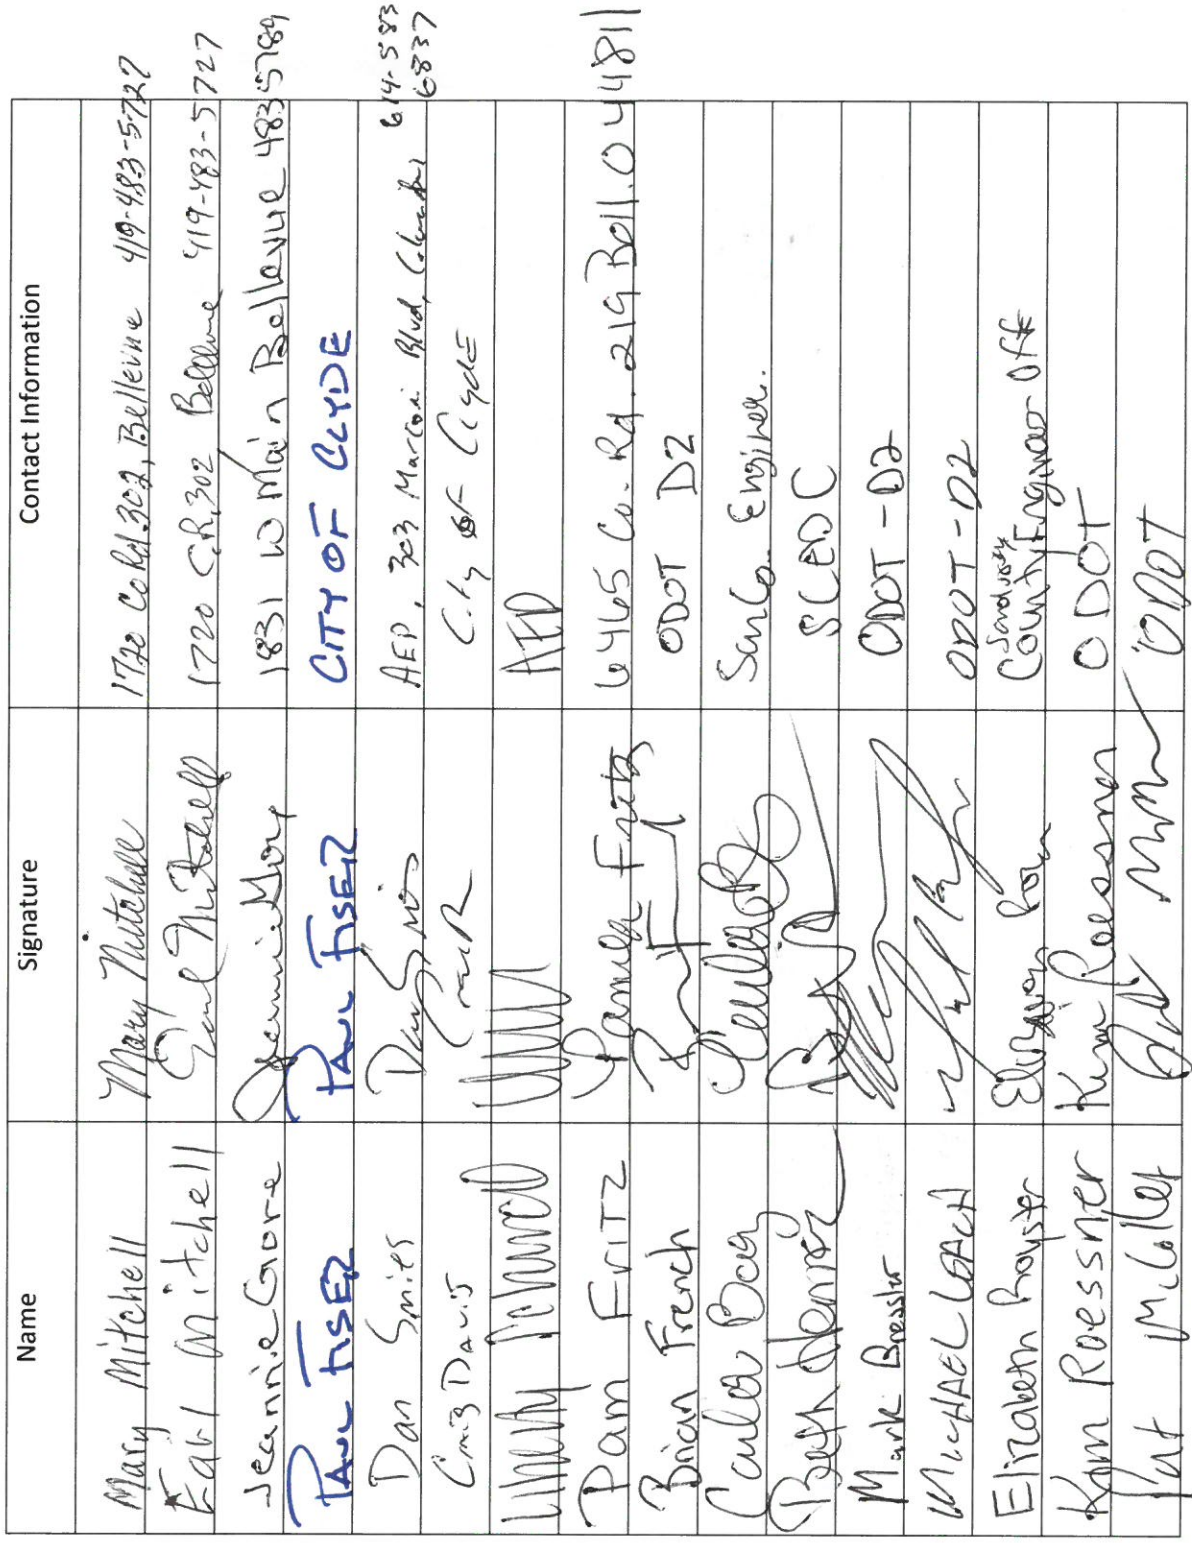 Name Signature Contact Information
Mary Mitchell Mary Mitchell 1720 Co Rd. 302, Bellevue 419-483-5722
Earl Mitchell Earl Mitchell 1720 C.R, 302 Bellevue 419-483-5727
Jeannie Gore 1831 W Main Bellevue 4835789
PAUL FISER PAUL FISER CITY OF CLYDE
Dan Smies AEP, 303 Marconi Blvd, Columbus 614-583
6837
Craig Davis City of Clyde
AEP
Pam Fritz Pamela Fritz 6465 Co. Rd. 219 Bell. O 44811
Brian French ODOT D2
Carlos San Co. Engineer.
Beth SCEDC
Mark Bressler ODOT-D2
MICHAEL LEACH ODOT-D2
Elizabeth Royster Sandusky
County Engineer Off
Kim Roessner Kim Roessner ODOT
Pat Miller ODOT